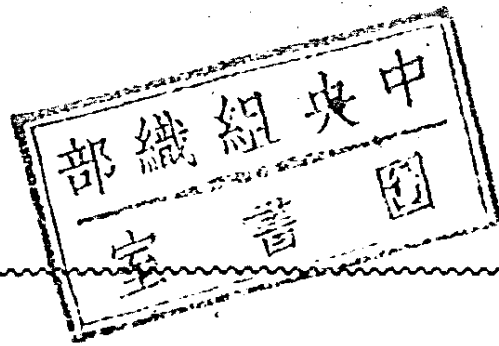 中央組織部
圖書室